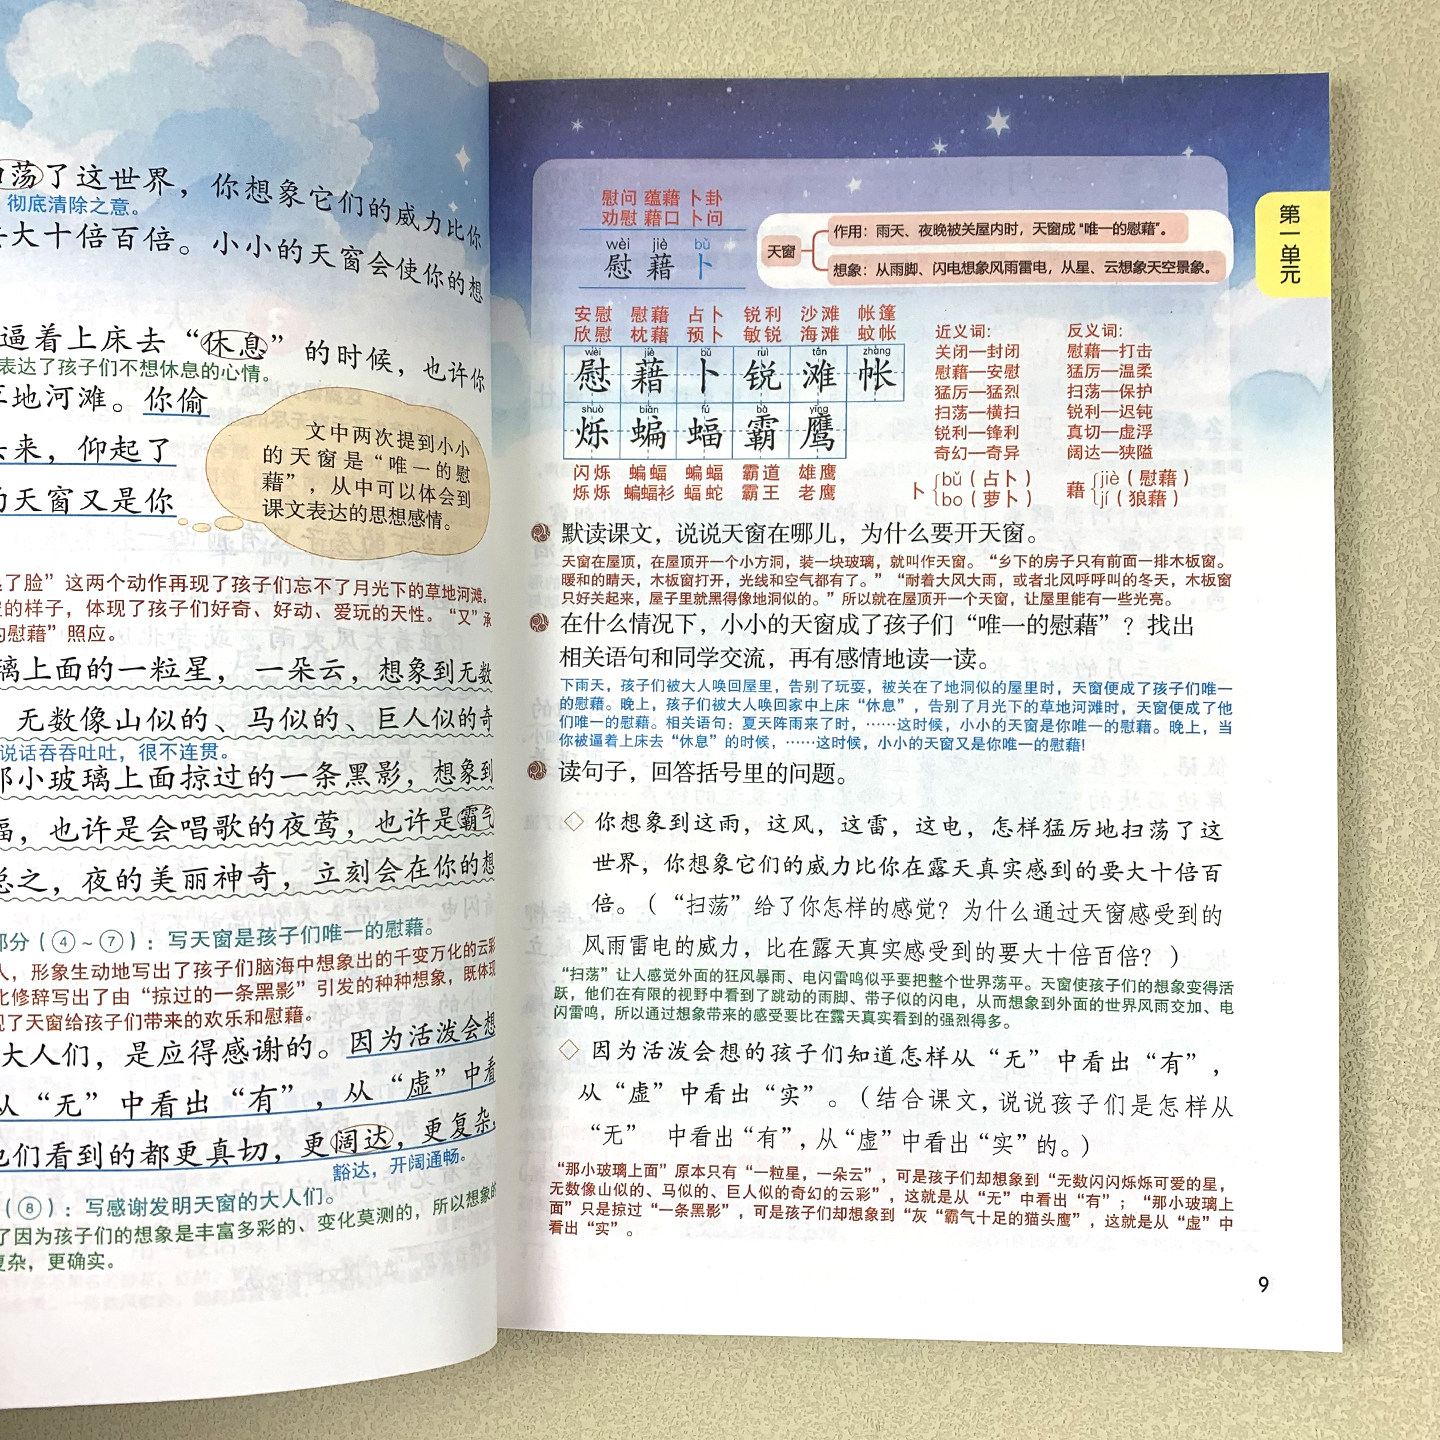 荡了这世界，你想象它们的威力比你
彻底清除之意。
大十倍百倍。小小的天窗会使你的想
逼着上床去“休息”的时候，也许你
表达了孩子们不想休息的心情。
地河滩。你偷
来，仰起了
天窗又是你
文中两次提到小小
的天窗是“唯一的慰
藉”，从中可以体会到
课文表达的思想感情。
了脸”这两个动作再现了孩子们忘不了月光下的草地河滩，
的样子，体现了孩子们好奇、好动、爱玩的天性。“又”承
慰藉”照应。
璃上面的一粒星，一朵云，想象到无数
，无数像山似的、马似的、巨人似的奇
说话吞吞吐吐，很不连贯。
那小玻璃上面掠过的一条黑影，想象到
蝠，也许是会唱歌的夜莺，也许是霸气
总之，夜的美丽神奇，立刻会在你的想
部分（④~⑦）：写天窗是孩子们唯一的慰藉。
人，形象生动地写出了孩子们脑海中想象出的千变万化的云彩
比修辞写出了由“掠过的一条黑影”引发的种种想象，既体现
现了天窗给孩子们带来的欢乐和慰藉。
大人们，是应得感谢的。因为活泼会想
从“无”中看出“有”，从“虚”中看
他们看到的都更真切，更阔达，更复杂，
豁达，开阔通畅。
（⑧）：写感谢发明天窗的大人们。
了因为孩子们的想象是丰富多彩的、变化莫测的，所以想象的
复杂，更确实。
第一单元
慰问 蕴藉 卜卦
劝慰 藉口 卜问
wèi jiè bǔ
慰 藉 卜
天窗
作用：雨天、夜晚被关屋内时，天窗成“唯一的慰藉”。
想象：从雨脚、闪电想象风雨雷电，从星、云想象天空景象。
安慰 慰藉 占卜 锐利 沙滩 帐篷
欣慰 枕藉 预卜 敏锐 海滩 蚊帐
wèi jiè bǔ ruì tān zhàng
慰 藉 卜 锐 滩 帐
shuò biān fú bà yīng
烁 蝙 蝠 霸 鹰
闪烁 蝙蝠 蝙蝠 霸道 雄鹰
烁烁 蝙蝠衫 蝠蛇 霸王 老鹰
近义词：
关闭—封闭
慰藉—安慰
猛厉—猛烈
扫荡—横扫
锐利—锋利
奇幻—奇异
反义词：
慰藉—打击
猛厉—温柔
扫荡—保护
锐利—迟钝
真切—虚浮
阔达—狭隘
卜 bǔ（占卜）
bo（萝卜）
藉 jiè（慰藉）
jí（狼藉）
默读课文，说说天窗在哪儿，为什么要开天窗。
天窗在屋顶，在屋顶开一个小方洞，装一块玻璃，就叫作天窗。“乡下的房子只有前面一排木板窗。
暖和的晴天，木板窗打开，光线和空气都有了。”“耐着大风大雨，或者北风呼呼叫的冬天，木板窗
只好关起来，屋子里就黑得像地洞似的。”所以就在屋顶开一个天窗，让屋里能有一些光亮。
在什么情况下，小小的天窗成了孩子们“唯一的慰藉”？找出
相关语句和同学交流，再有感情地读一读。
下雨天，孩子们被大人唤回屋里，告别了玩耍，被关在了地洞似的屋里时，天窗便成了孩子们唯一
的慰藉。晚上，孩子们被大人唤回家中上床“休息”，告别了月光下的草地河滩时，天窗便成了他
们唯一的慰藉。相关语句：夏天阵雨来了时，……这时候，小小的天窗是你唯一的慰藉。晚上，当
你被逼着上床去“休息”的时候，……这时候，小小的天窗又是你唯一的慰藉！
读句子，回答括号里的问题。
◇ 你想象到这雨，这风，这雷，这电，怎样猛厉地扫荡了这
世界，你想象它们的威力比你在露天真实感到的要大十倍百
倍。（“扫荡”给了你怎样的感觉？为什么通过天窗感受到的
风雨雷电的威力，比在露天真实感受到的要大十倍百倍？）
“扫荡”让人感觉外面的狂风暴雨、电闪雷鸣似乎要把整个世界荡平。天窗使孩子们的想象变得活
跃，他们在有限的视野中看到了跳动的雨脚、带子似的闪电，从而想象到外面的世界风雨交加、电
闪雷鸣，所以通过想象带来的感受要比在露天真实看到的强烈得多。
◇ 因为活泼会想的孩子们知道怎样从“无”中看出“有”，
从“虚”中看出“实”。（结合课文，说说孩子们是怎样从
“无” 中看出“有”，从“虚”中看出“实”的。）
“那小玻璃上面”原本只有“一粒星，一朵云”，可是孩子们却想象到“无数闪闪烁烁可爱的星，
无数像山似的、马似的、巨人似的奇幻的云彩”，这就是从“无”中看出“有”；“那小玻璃上
面”只是掠过“一条黑影”，可是孩子们却想象到“灰“霸气十足的猫头鹰”，这就是从“虚”中
看出“实”。
9